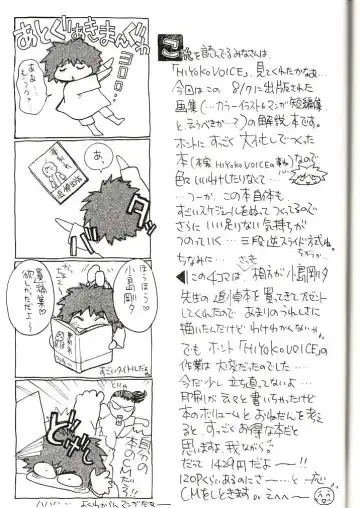 あとがきあきまんが
ヨロロ…
あ、
ほうほう♡
小島剛夕
自分の
本のCMだろ!!
すごいタイトルだな
ハハハ… よくわからんマンガだなー
この絵を読んでるみなさんは、
「HIYOKO VOICE」、見てくれたかなぁ…
今回はこの 8/7に出版された
画集(…カラーイラスト&マンガ短編集
と言うべきか…?)の解説本です。
ホントに すっごく 大忙しでつくった
本(本家 HIYOKO VOICEの事ね)なので
色々いいわけしたりなくて…
…つーか、この本自体も
すごいスケジュールをぬってつくってるので
さらに いい足りない気持ちが
つのっていく… 三段逆スライド方式ね。
ちなみに…
◀この4コマは 相方が小島剛夕
先生の 追悼本を買ってきてプレゼント
してくれたので あまりのうれしさに
描いたんだけど わけわかんないが
でも ホント「HIYOKO VOICE」の
作業は大変だったのでした…
今だ少し 立ち直ってないよ…
印刷が云々と書いちゃったけど
本のボリュームとおねだんを考え
ると すっごくお得な本だと
思いますよ、我ながら。
だって 1429円だよ──!!
120Pくらいあるのにさ…と 一応
CMをしときます。 えへへ〜